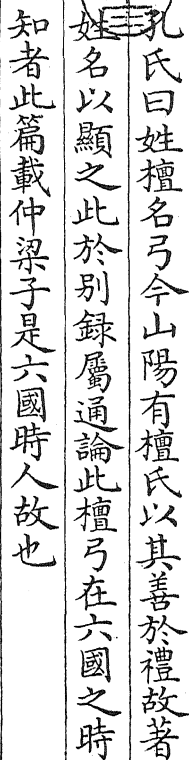 孔氏曰姓檀名弓今山陽有檀氏以其善於禮故著
姓名以顯之此於别録屬通論此檀弓在六國之時
知者此篇載仲梁子是六國時人故也